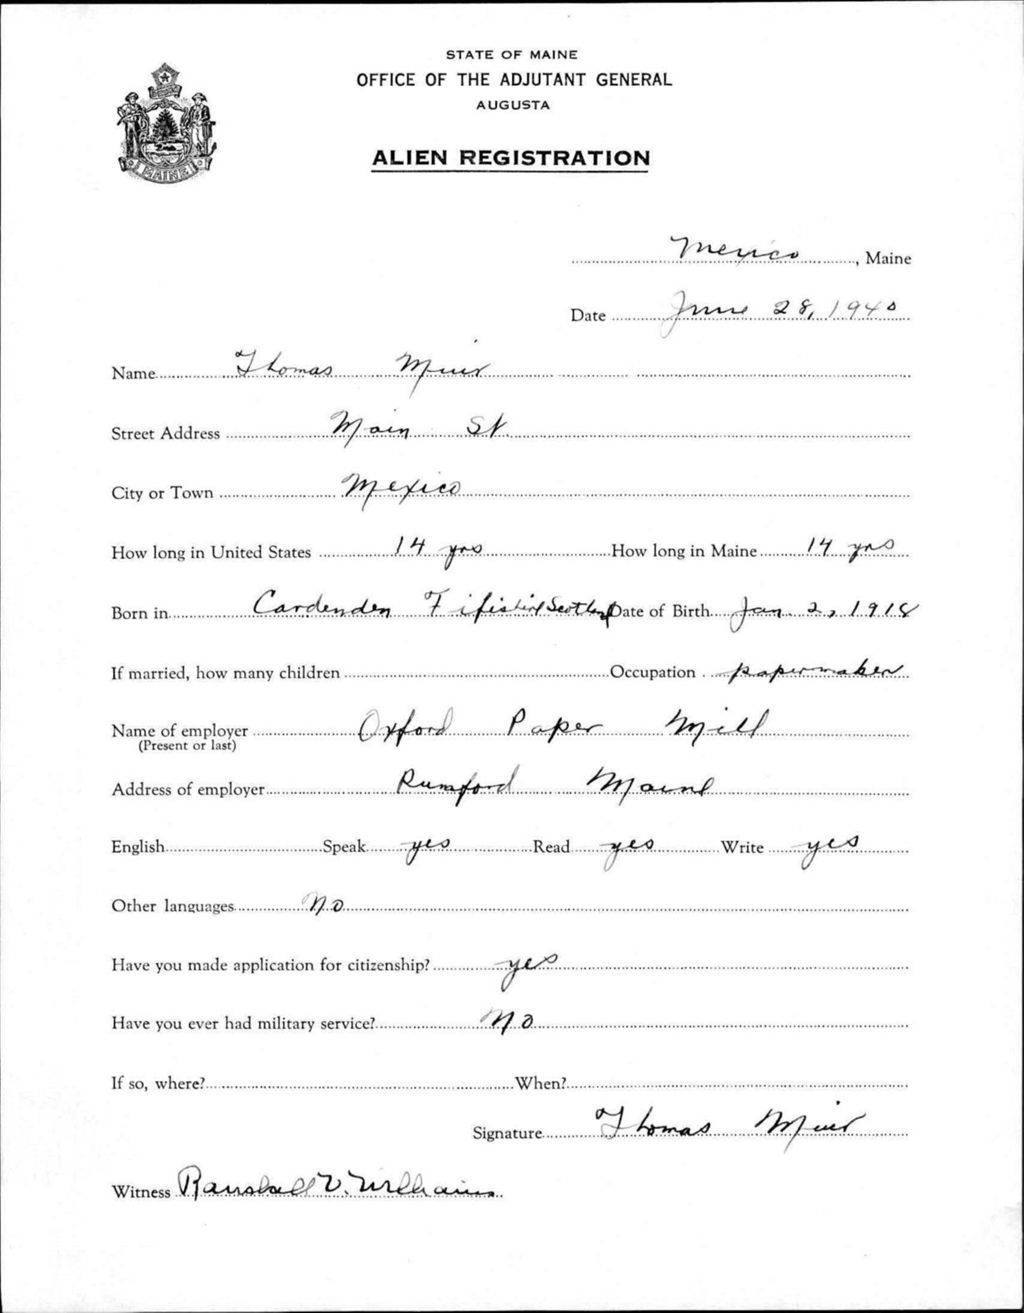 STATE OF MAINE
OFFICE OF THE ADJUTANT GENERAL
AUGUSTA
ALIEN REGISTRATION
MAINE
Mexico, Maine
Date June 28, 1940
Name Thomas Muir
Street Address Main St.
City or Town Mexico
How long in United States 14 yrs How long in Maine 14 yrs
Born in Cardenden Fifeshire Scotland Date of Birth Jan. 2, 1918
If married, how many children Occupation papermaker
Name of employer Oxford Paper Mill
(Present or last)
Address of employer Rumford Maine
English Speak yes Read yes Write yes
Other languages No
Have you made application for citizenship? yes
Have you ever had military service? No
If so, where? When?
Signature Thomas Muir
Witness V. Williams